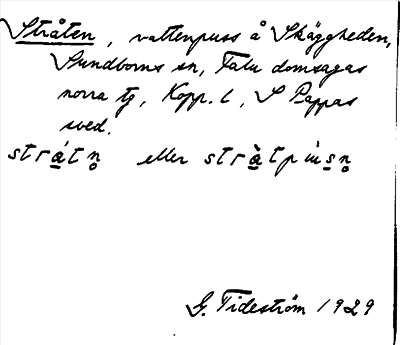 Stråten, vattenpuss å Skäggheden,
Sundborns sn, Falu domsagas
norra tg, Kopp. l, S Pappas
sved.
strát̥n eller stràtpùsn̥
G. Tideström 1929